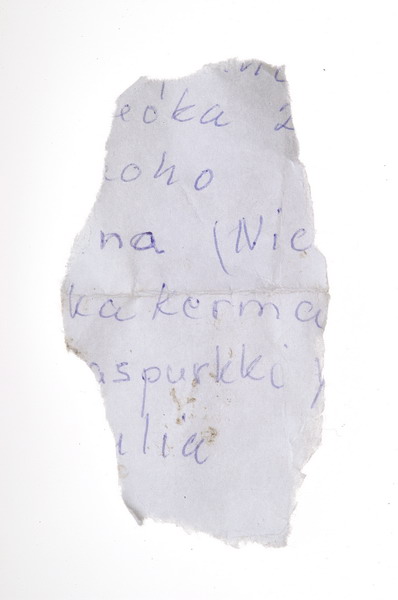 eóka 2
oho
na (Nic
kakerma
aspurkki
ulia